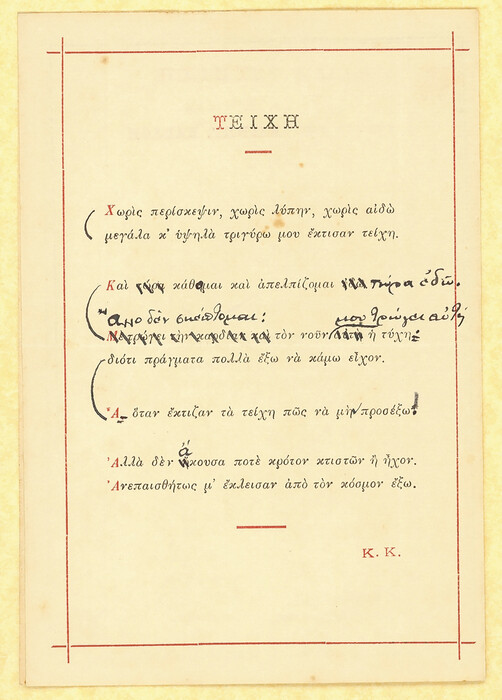 ΤΕΙΧΗ
Χωρὶς περίσκεψιν, χωρὶς λύπην, χωρὶς αἰδὼ
μεγάλα κ' ὑψηλὰ τριγύρω μου ἔκτισαν τείχη.
Καὶ κάθομαι καὶ ἀπελπίζομαι τώρα ἐδῶ.
Ἄλλο δὲν σκέπτομαι: μου τρώγει αὐτή
Μὲ τρώγει τὴν καρδίαν καὶ τὸν νοῦν αὐτὴ ἡ τύχη:
διότι πράγματα πολλὰ ἔξω νὰ κάμω εἶχον.
Ἀ ὅταν ἔκτιζαν τὰ τείχη πῶς νὰ μὴ προσέξω!
ἄ
Ἀλλὰ δὲν ἤκουσα ποτὲ κρότον κτιστῶν ἢ ἦχον.
Ἀνεπαισθήτως μ' ἔκλεισαν ἀπὸ τὸν κόσμον ἔξω.
Κ. Κ.